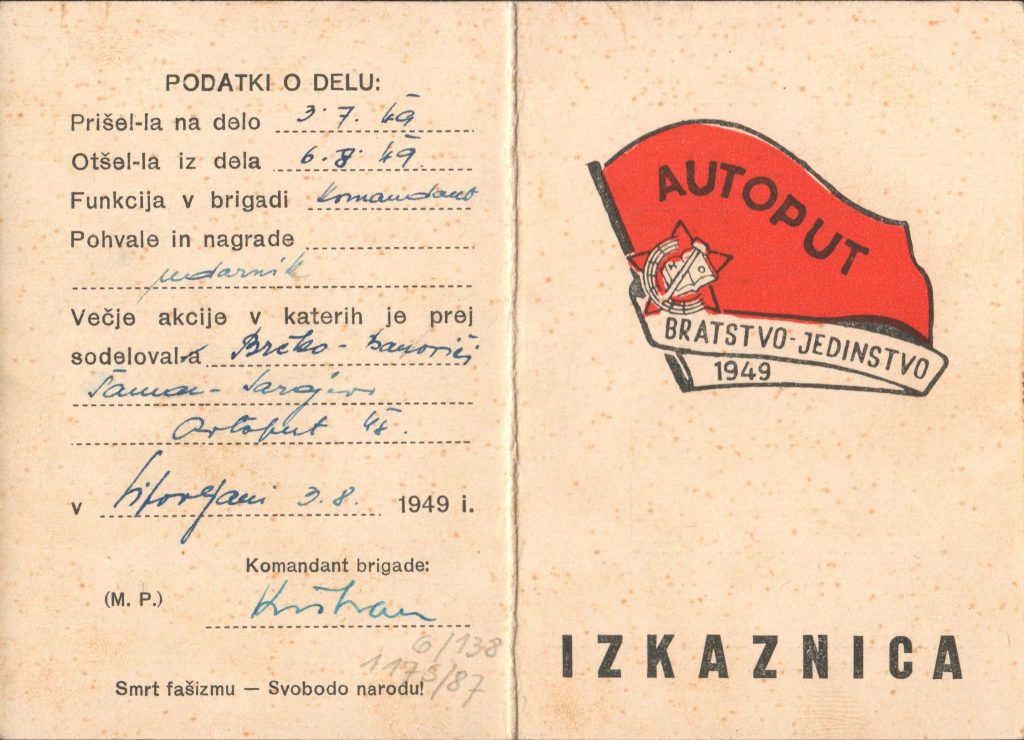 PODATKI O DELU:
Prišel-la na delo 3. 7. 49
Otšel-la iz dela 6. 8. 49
Funkcija v brigadi Komandant
Pohvale in nagrade
udarnik
Večje akcije v katerih je prej
sodeloval-a Brčko - Banovići
Šamac - Sarajevo
Avtoput 48.
v 3. 8. 1949 i.
Komandant brigade:
(M. P.)
6/138
1175/87
Smrt fašizmu — Svobodo narodu!
AUTOPUT
BRATSTVO-JEDINSTVO
1949
IZKAZNICA